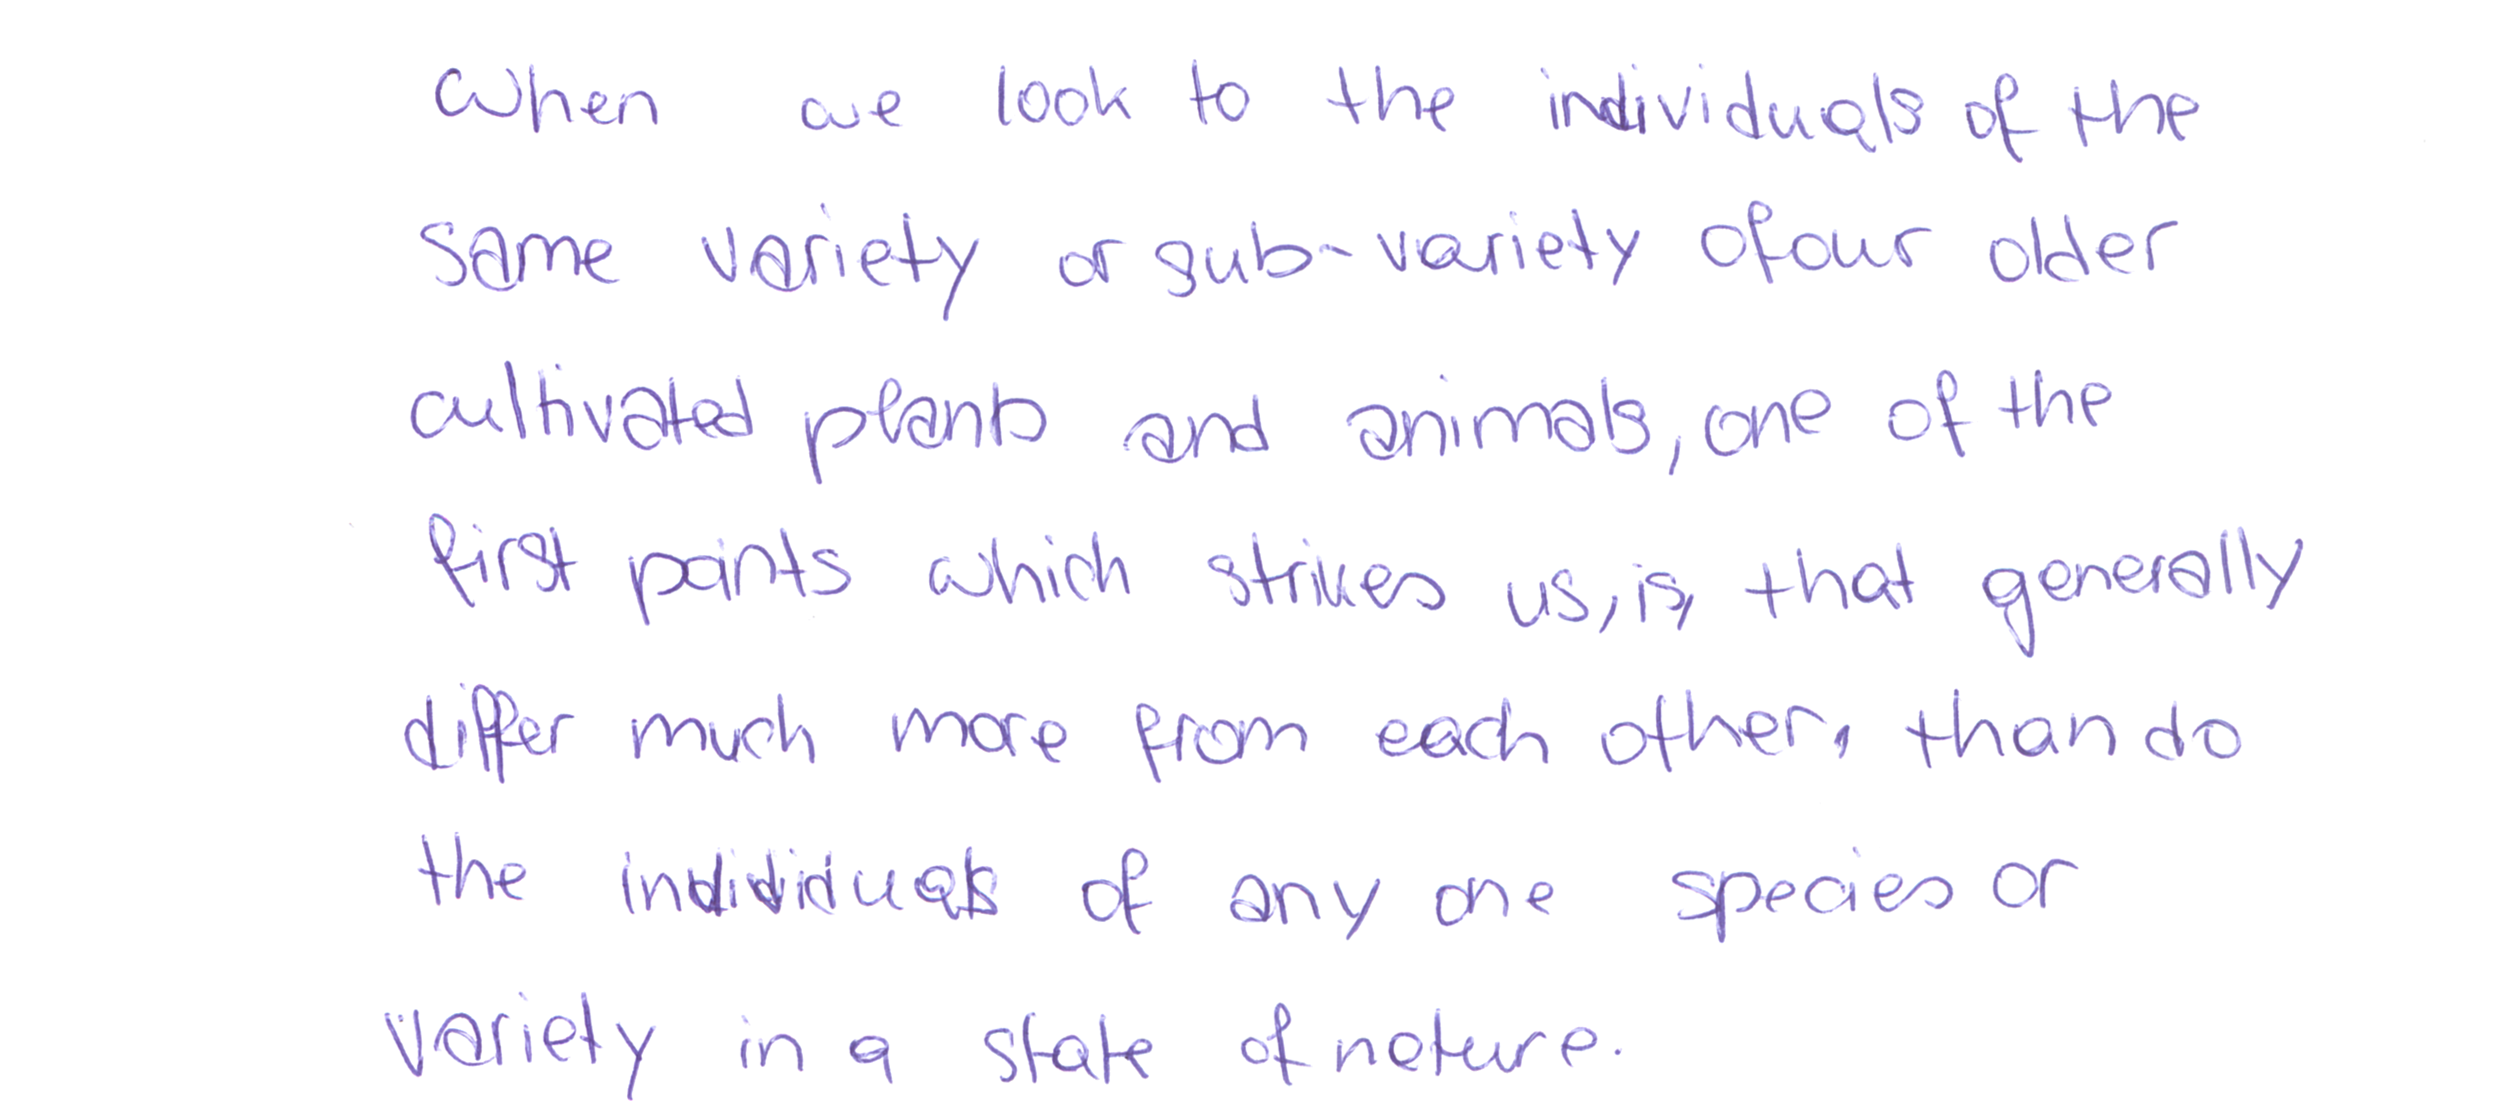 When we look to the individuals of the
same variety or sub-variety of our older
cultivated plants and animals, one of the
first points which strikes us, is, that generally
differ much more from each other, than do
the individuals of any one species or
variety in a state of nature.